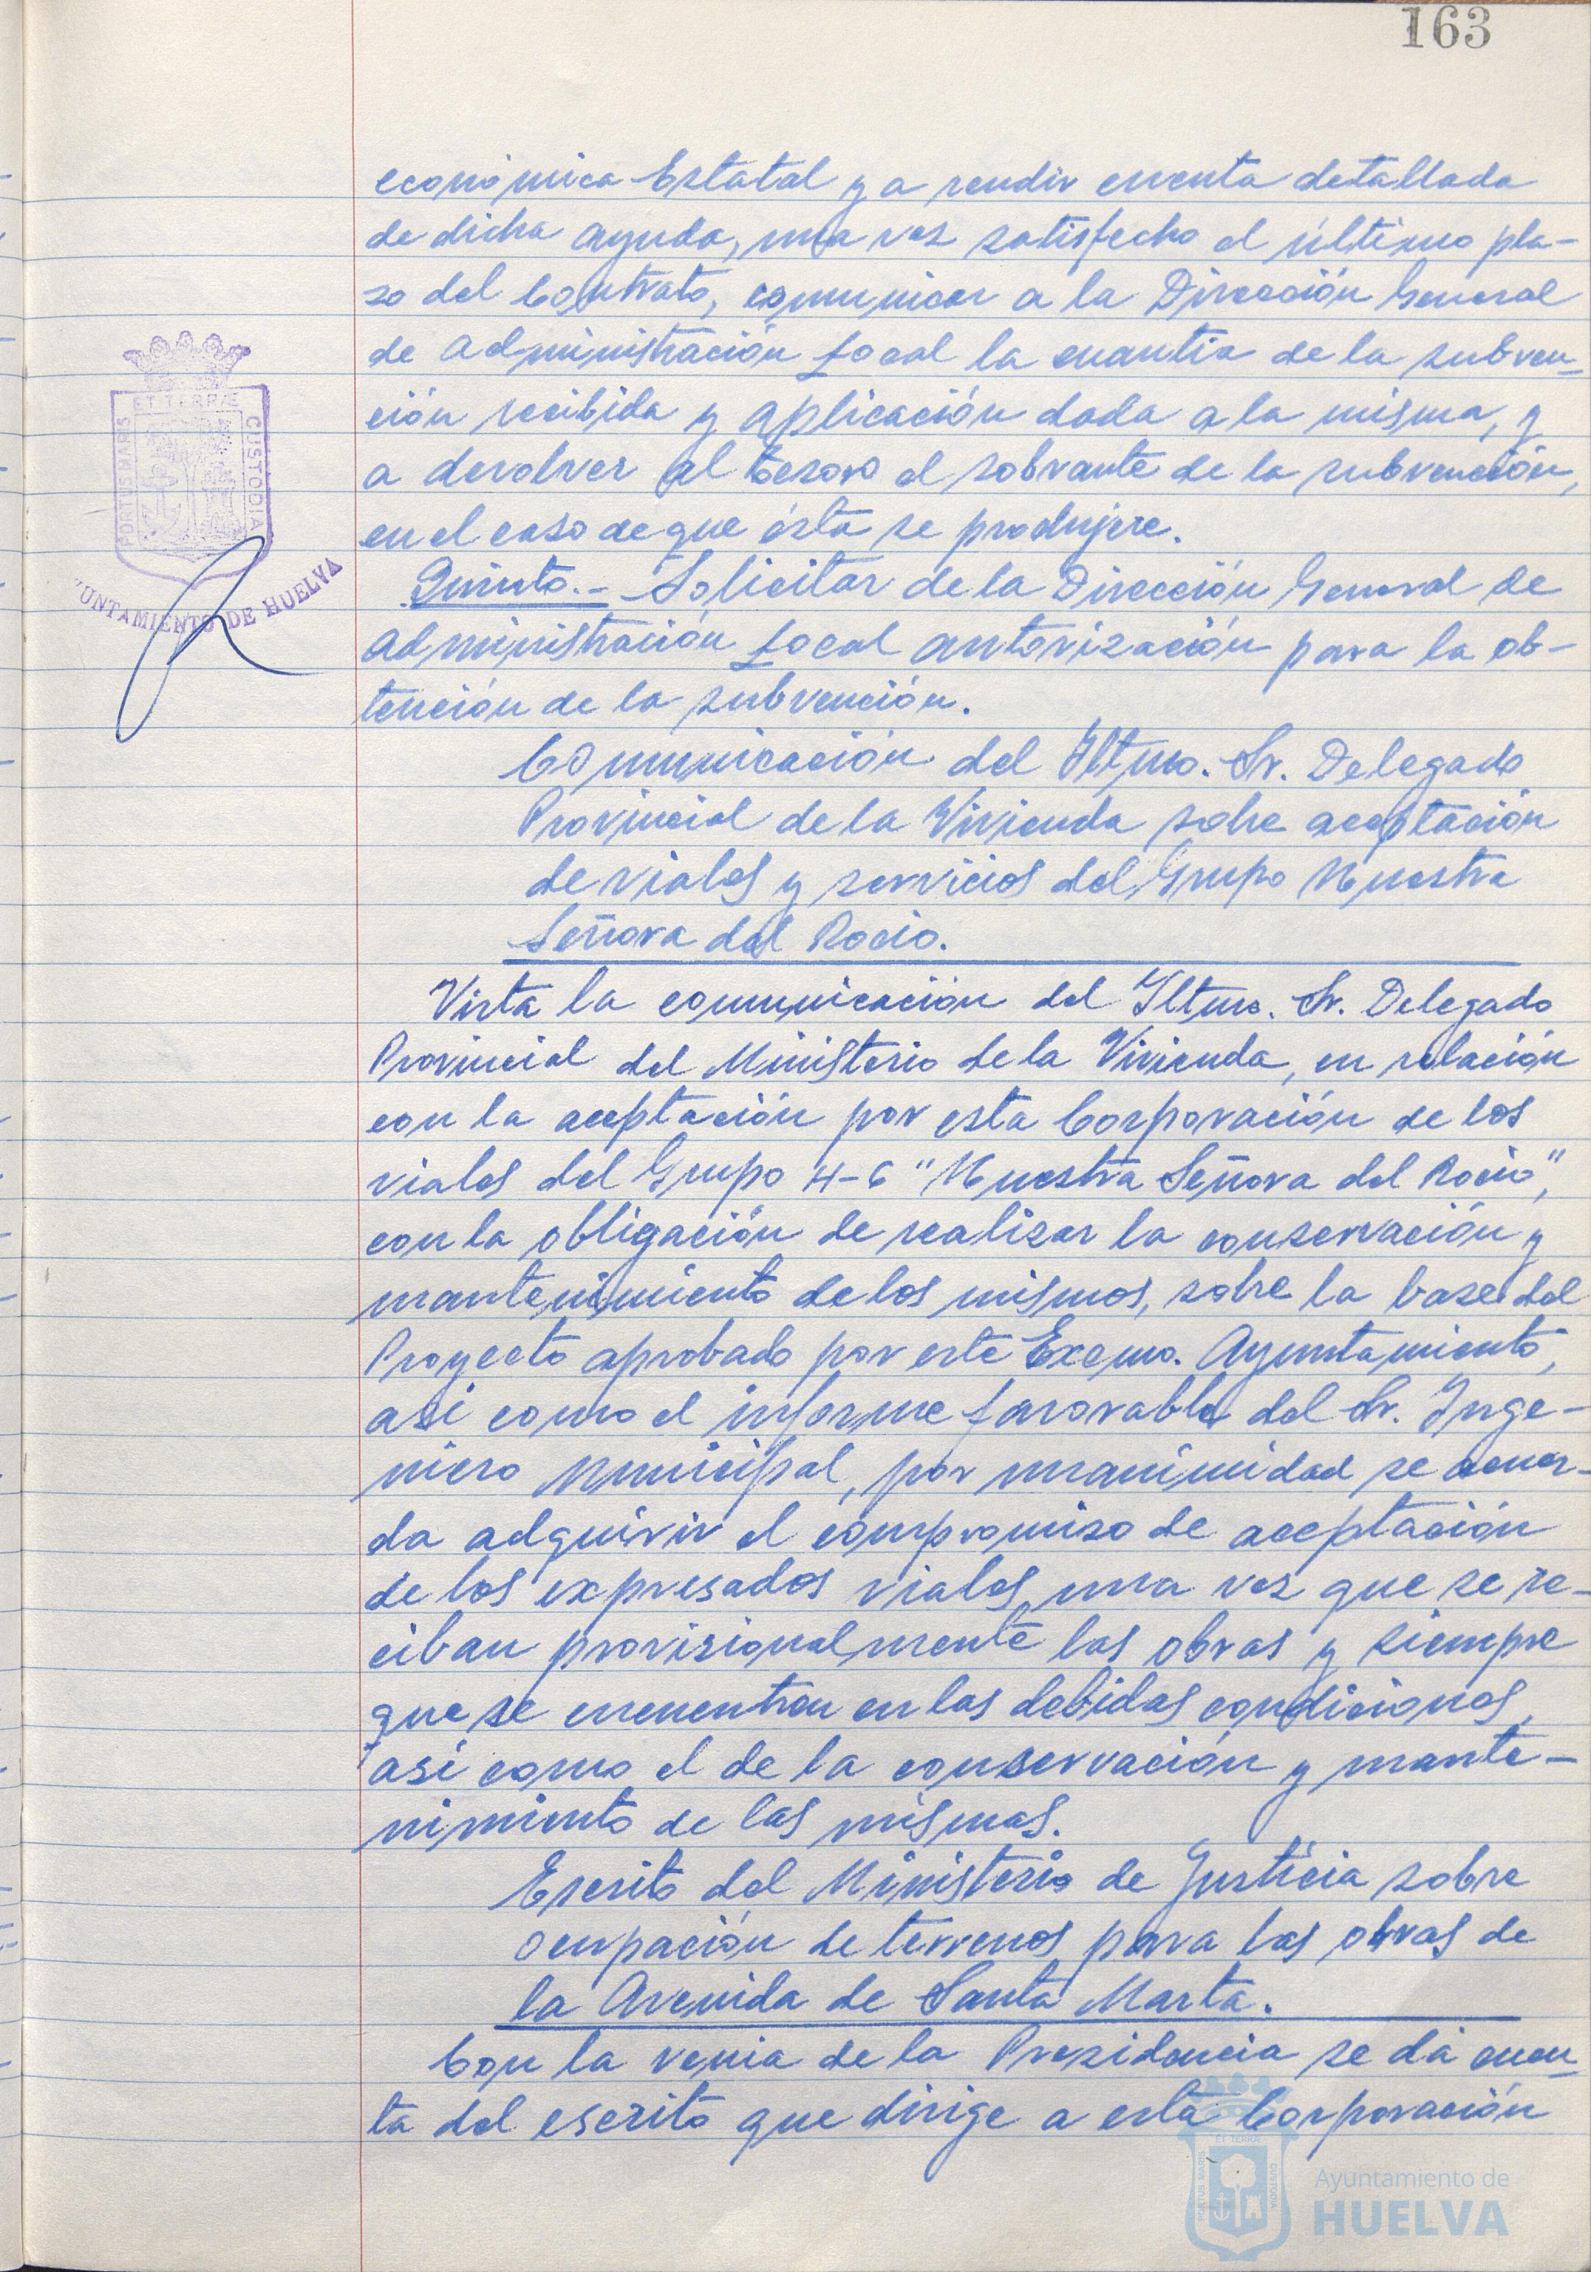 163
económica Estatal y a rendir cuenta detallada
de dicha ayuda, una vez satisfecho el último pla-
zo del Contrato, comunicar a la Dirección General
de Administración Local la cuantía de la subven-
ción recibida y aplicación dada a la misma, y
a devolver al Tesoro el sobrante de la subvención,
en el caso de que ésta se produjere.
Quinto.- Solicitar de la Dirección General de
Administración Local autorización para la ob-
tención de la subvención.
Comunicación del Iltmo. Sr. Delegado
Provincial de la Vivienda sobre aceptación
de viales y servicios del Grupo Nuestra
Señora del Rocio.
Vista la comunicación del Iltmo. Sr. Delegado
Provincial del Ministerio de la Vivienda, en relación
con la aceptación por esta Corporación de los
viales del Grupo H-6 "Nuestra Señora del Rocio",
con la obligación de realizar la conservación y
mantenimiento de los mismos, sobre la base del
Proyecto aprobado por este Excmo. Ayuntamiento,
así como el informe favorable del Sr. Inge-
niero Municipal, por unanimidad se acuer-
da adquirir el compromiso de aceptación
de los expresados viales una vez que se re-
ciban provisionalmente las obras y siempre
que se encuentren en las debidas condiciones,
así como el de la conservación y mante-
nimiento de las mismas.
Escrito del Ministerio de Justicia sobre
ocupación de terrenos para las obras de
la Avenida de Santa Marta.
Con la venia de la Presidencia se dá cuen-
ta del escrito que dirige a esta Corporación
PORTUS MARIS
ET TERRÆ
CUSTODIA
UNTAMIENTO DE HUELVA
PORTUS MARIS
ET TERRÆ
CUSTODIA
Ayuntamiento de
HUELVA